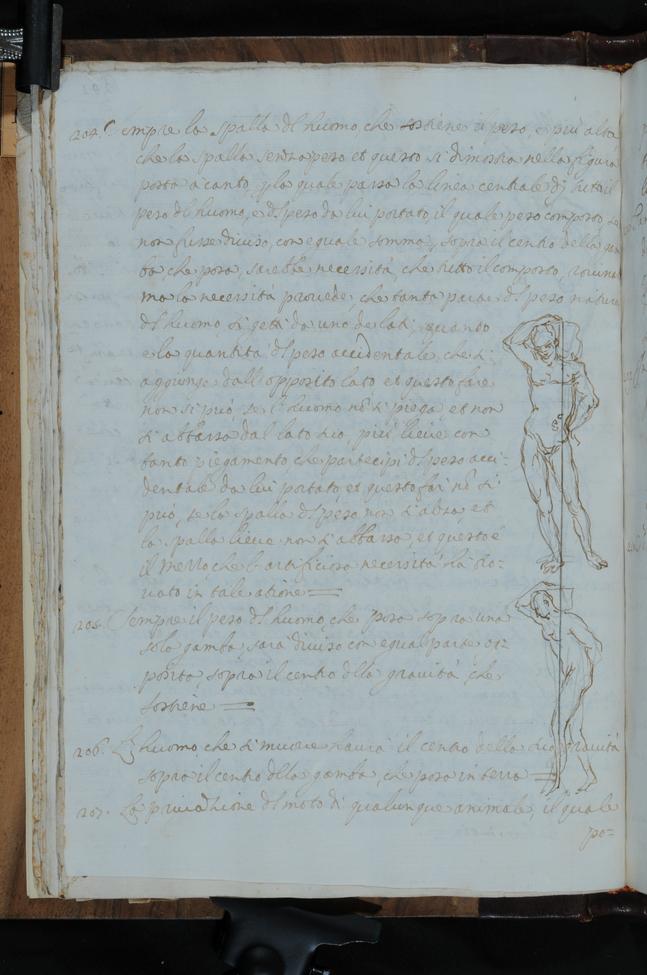 204. Sempre la spalla dl huomo, che sostiene il peso, e piu alta
che la spalla senza peso et questo si dimostra nella figura
posta a canto, p la quale passa la linea centrale di tutto il
peso dl huomo, e dl peso da lui portato, il quale peso composto se
non fusse diuiso, con equale somma, sopra il centro della gam
ba che posa, sarebbe necessità, che tutto il composto, rouinas
ma la necessità prouede, che tanta parte dl peso natura
dl huomo, si getti da uno de lati, quanto
e la quantità dl peso accidentale, che si
aggiunge dall opposito lato et questo fare
non si può, se l'huomo nõ si piega et non
si abbassa dal lato suo, più lieue con
tanto piegamento che partecipi dl peso acci-
dentale da lui portato, et questo far nõ si
può, se la spalla dl peso non s'alza, et
la spalla lieue non s'abbassa, et questo è
il mezzo, che l'artifitiosa necessità hà tro-
uato in tale atione =
205. Sempre il peso dl huomo, che posa sopra una
sola gamba, sarà diuiso con equal parte op-
posita, sopra il centro dlla grauità che
sostiene =
206. L'huomo che si muoue haurà il centro della sua grauità
sopra il centro dlla gamba, che posa in terra =
207. La priuatione dl moto di qualunque animale, il quale
po=